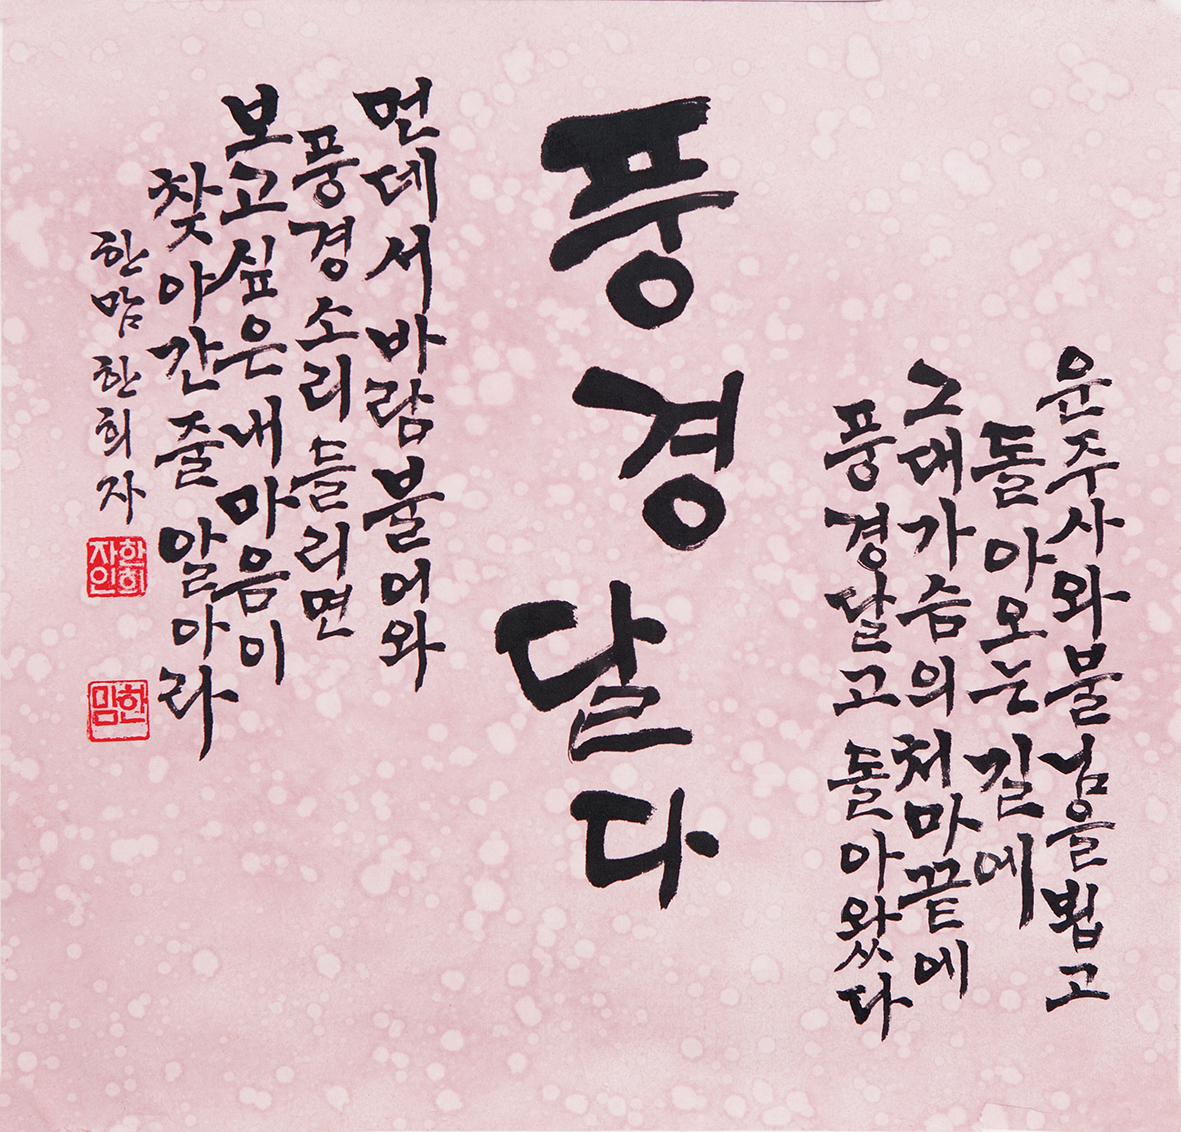 운주사와불님을뵙고
돌아오는 길에
그대가슴의 처마끝에
풍경달고 돌아왔다
풍경 달다
먼데서바람불어와
풍경소리들리면
보고싶은내마음이
찾아간줄 알아라
한맘 한희자
한희
자인
한
맘